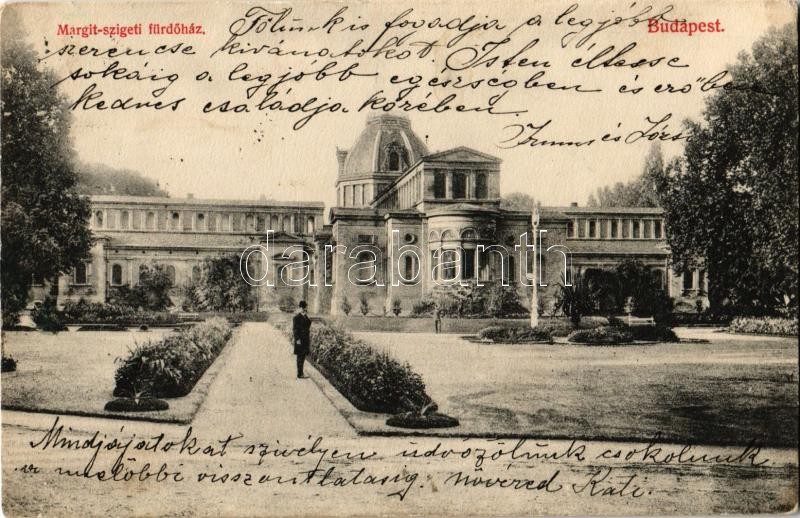 Margit-szigeti fürdőház.
Budapest.
Tőlünk is fogadja a legjobb
szerencse kivánatokat. Isten éltesse
sokáig a legjobb egészségben és erőben
kedves családja körében
és Józsi
darabanth
Mindjájatokat szivélyen üdvözölünk csokolunk
a mielőbbi viszontlátásig. növéred Kati.